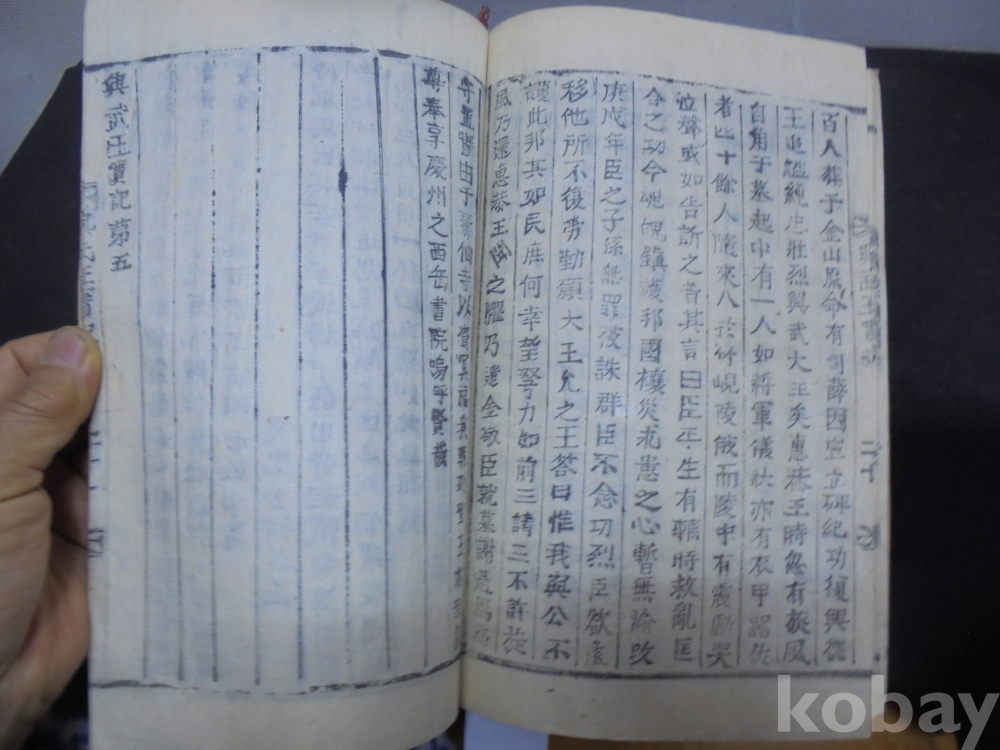 百人葬于金山原命有司
立碑紀功復興
王追 純忠壯烈興武大王矣惠恭王時忽有旋風
自角于墓起中有一人如將軍儀狀亦有衣甲器仗
者四十餘人隨來入於竹峴陵俄而陵中有震動哭
泣聲或如告訴之音其言曰臣平生有輔時救亂匡
合之功今魂魄鎮護邦國攘災求患之心暫無渝改
庚戌年臣之子孫無罪彼誅群臣不念功烈臣欲遠
移他所不復勞勤願大王允之王答曰惟我與公不
護此邦其如民庶何幸望努力如前三請三不許旋
風乃還惠恭王聞之懼乃遣金敬臣就墓謝過焉
仙寺以
尊奉享慶州之西岳書院嗚呼賢哉
興武王實記第五
二十
kobay